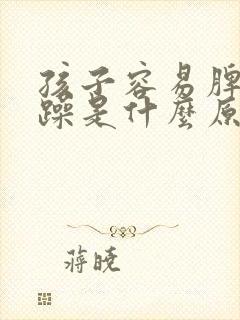 孩子容易脾
躁是什麼原
蒋晓